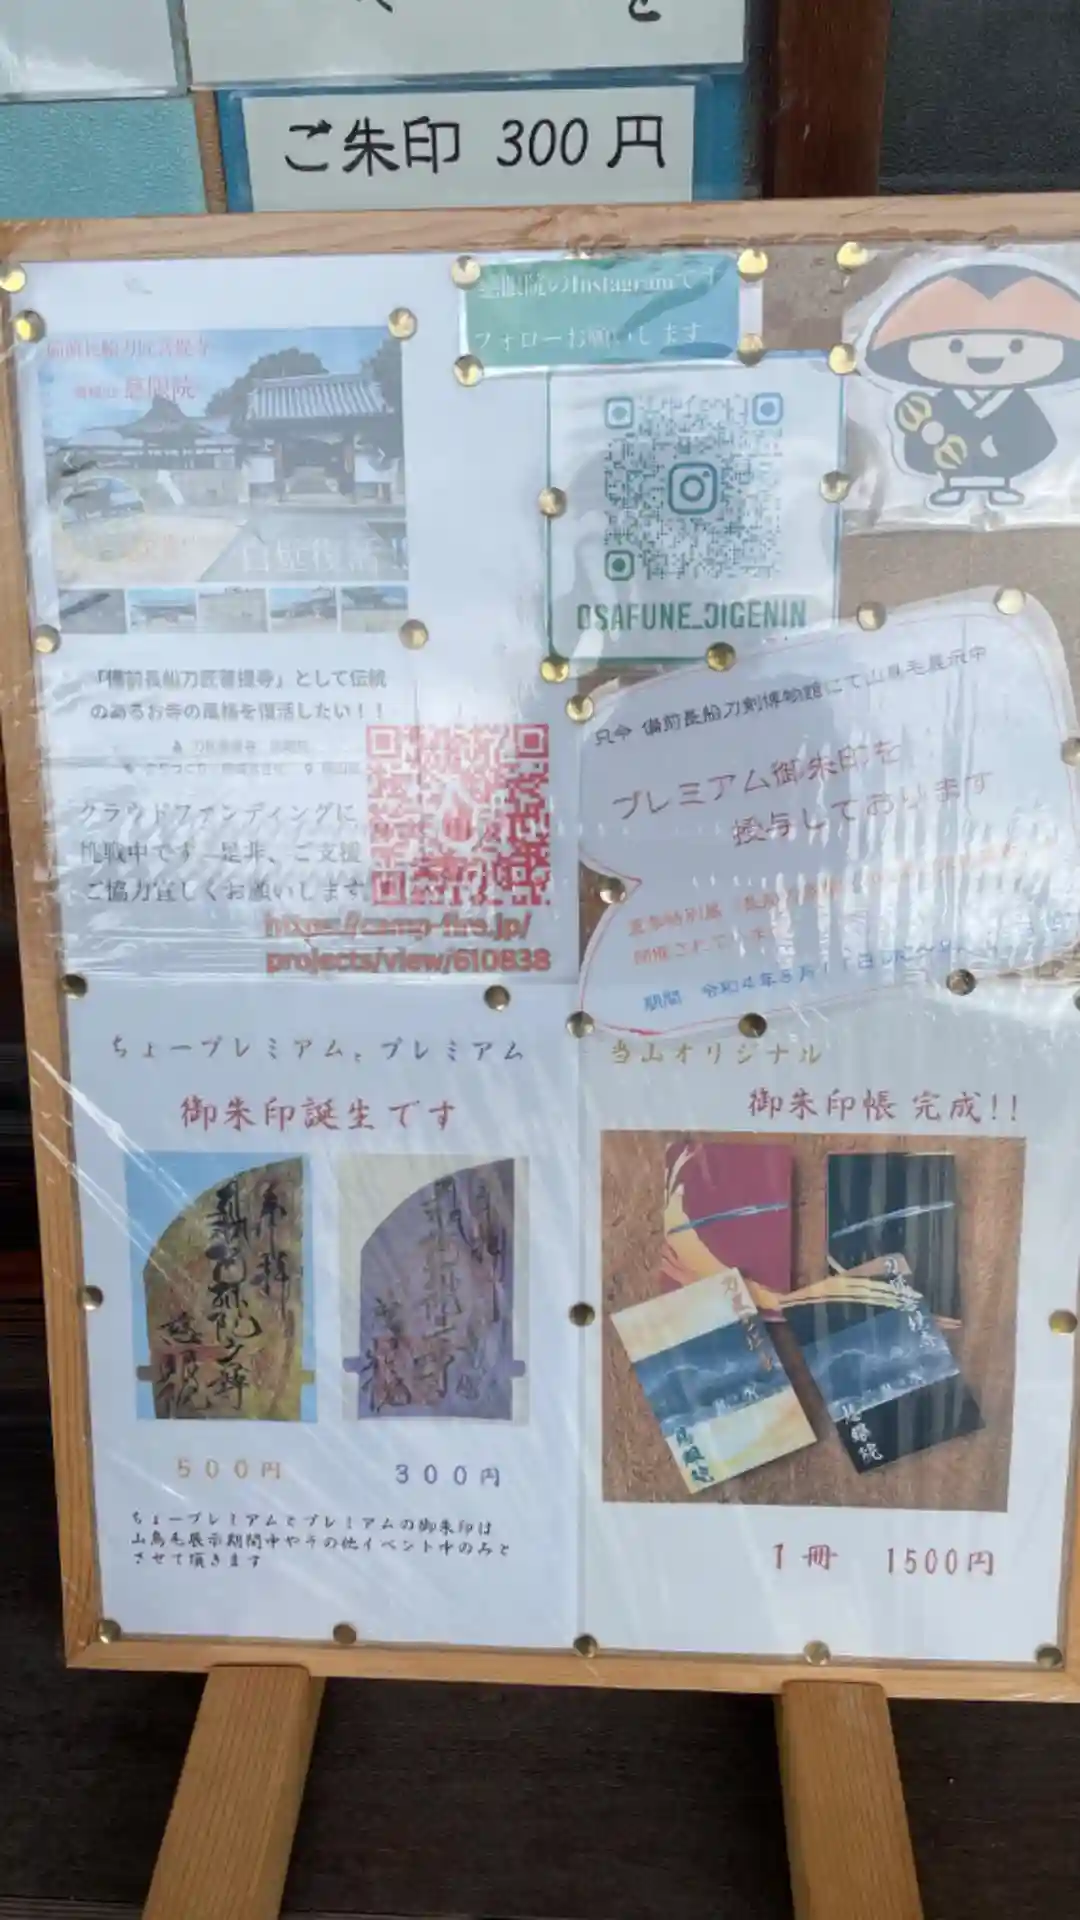 ご朱印 300円
慈眼院のInstagramです
フォローお願いします
備前長船刀匠菩提寺
慈眼院
OSAFUNE_JIGENIN
「備前長船刀匠菩提寺」として伝統
のあるお寺の風格を復活したい！！
クラウドファンディングに
挑戦中です 是非、ご支援
ご協力宜しくお願いします
https://camp-fire.jp/
projects/view/610838
只今 備前長船刀剣博物館にて山鳥毛展示中
プレミアム御朱印を
授与しております
開催されています
期間 令和4年
ちょープレミアムとプレミアム
御朱印誕生です
奉拝
慈眼院
500円
300円
ちょープレミアムとプレミアムの御朱印は
山鳥毛展示期間中やその他イベント中のみと
させて頂きます
当山オリジナル
御朱印帳 完成!!
慈眼院
慈眼院
1冊 1500円